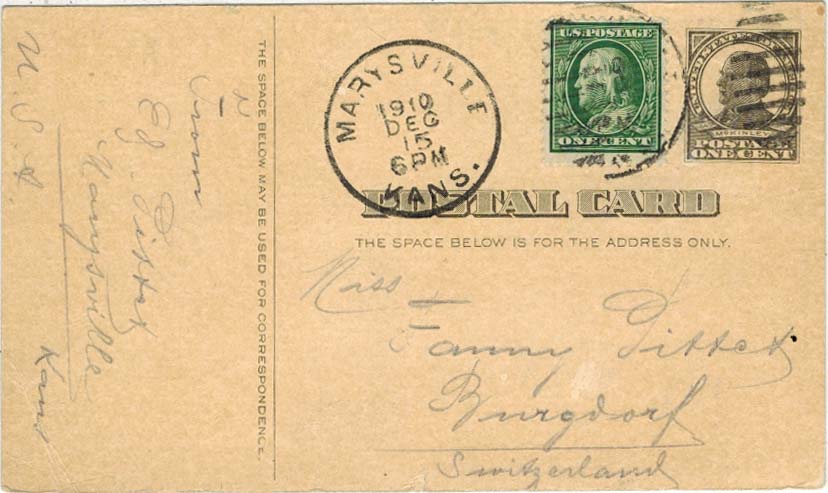 U. S. A.
From
Ed. Pittet
Marysville
Kans
THE SPACE BELOW MAY BE USED FOR CORRESPONDENCE.
MARYSVILLE
1910
DEC
15
6 PM
KANS.
U.S. POSTAGE
ONE CENT
UNITED STATES OF AMERICA
McKINLEY
POSTAGE
ONE CENT
POSTAL CARD
THE SPACE BELOW IS FOR THE ADDRESS ONLY.
Miss
Fanny Pittet
Burgdorf
Switzerland